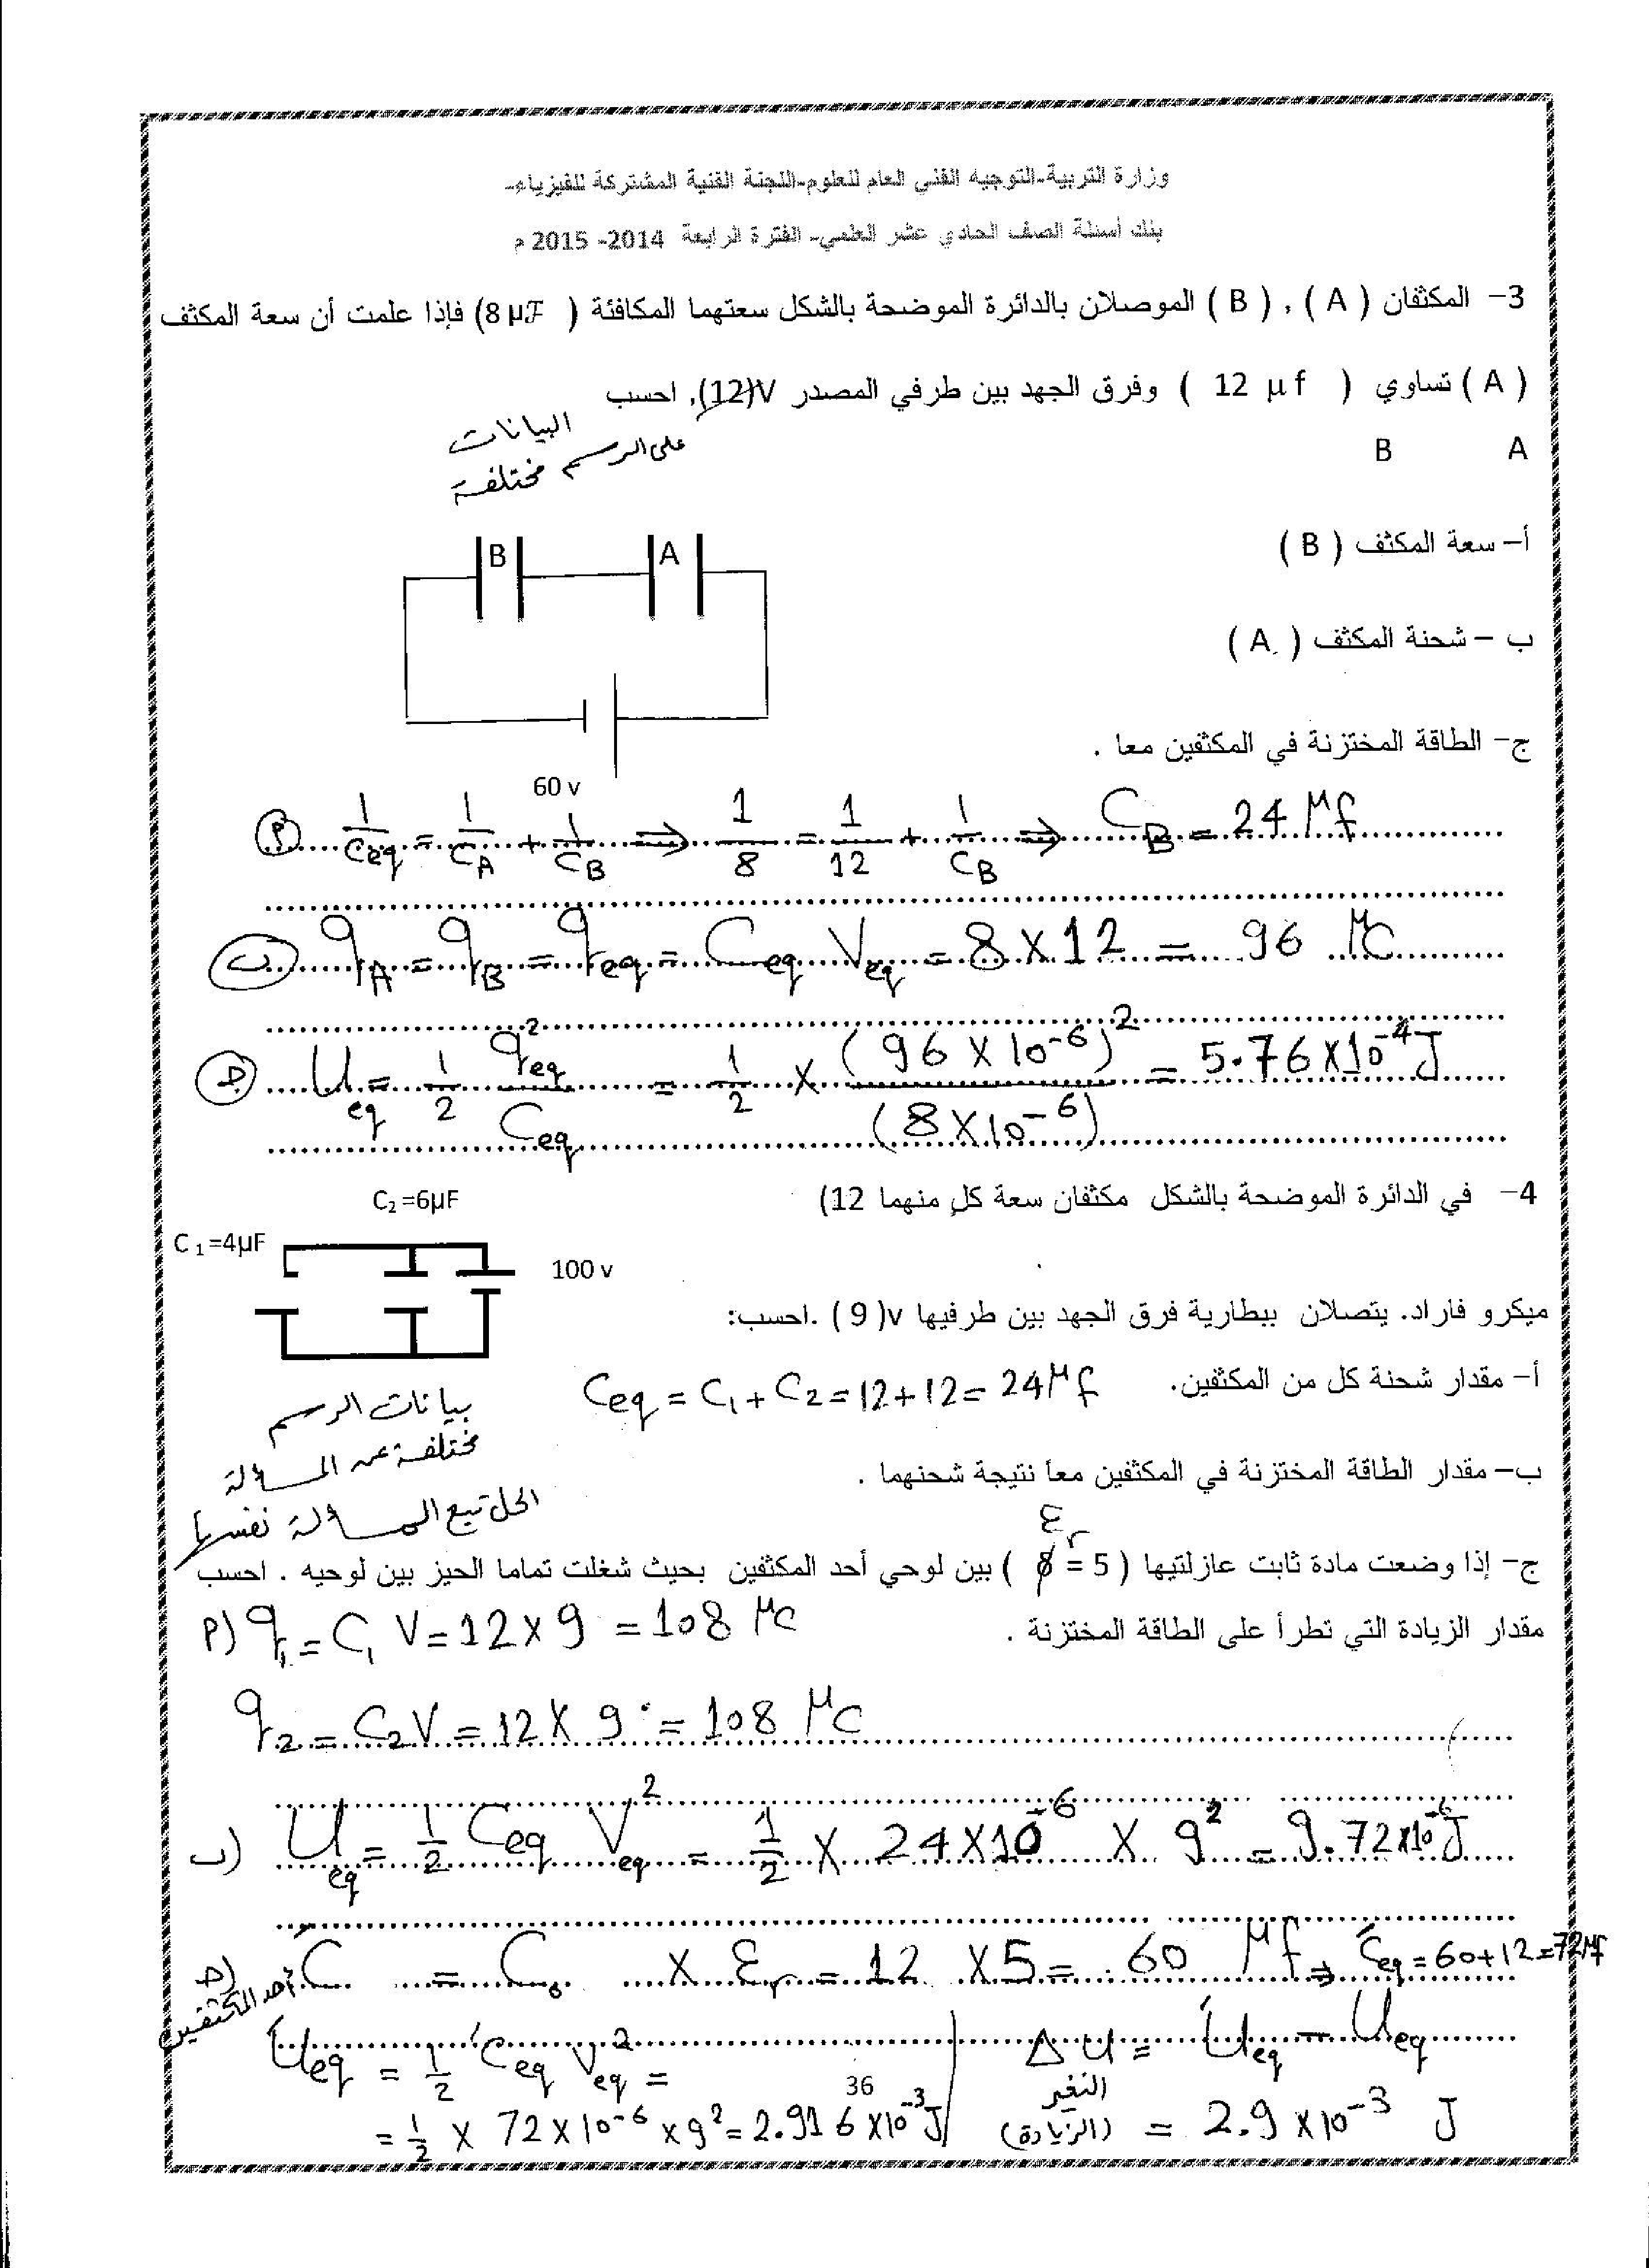 وزارة التربية-التوجيه الفني العام للعلوم-اللجنة الفنية المشتركة للفيزياء-
بنك أسئلة الصف الحادي عشر العلمي- الفترة الرابعة 2014- 2015 م
3- المكثفان ( A ) ، ( B ) الموصلان بالدائرة الموضحة بالشكل سعتهما المكافئة ( 8 μF) فإذا علمت أن سعة المكثف
( A ) تساوي ( 12 μ f ) وفرق الجهد بين طرفي المصدر 12)V), احسب
البيانات
على الرسم مختلفة
B A
أ- سعة المكثف ( B )
B A
ب - شحنة المكثف ( A )
ج- الطاقة المختزنة في المكثفين معا .
60 v
P 1/Ceq = 1/CA + 1/CB ⇒ 1/8 = 1/12 + 1/CB ⇒ CB = 24 μf
ب qA = qB = qeq = Ceq Veq = 8 X 12 = 96 μC
ج Ueq = 1/2 q²eq/Ceq = 1/2 X (96 X 10⁻⁶)²/(8 X 10⁻⁶) = 5.76 X 10⁻⁴ J
4- في الدائرة الموضحة بالشكل مكثفان سعة كلٍ منهما 12)
C₂ =6μF
C ₁ =4μF
100 v
ميكرو فاراد. يتصلان ببطارية فرق الجهد بين طرفيها v( 9 ) .احسب:
أ- مقدار شحنة كل من المكثفين. Ceq = C₁ + C₂ = 12 + 12 = 24 μf
بيانات الرسم
مختلفة عن المسألة
الحل تبع المسألة نفسها
ب- مقدار الطاقة المختزنة في المكثفين معاً نتيجة شحنهما .
εr
ج- إذا وضعت مادة ثابت عازلتيها ( 5 = ) بين لوحي أحد المكثفين بحيث شغلت تماما الحيز بين لوحيه . احسب
مقدار الزيادة التي تطرأ على الطاقة المختزنة .
P) q₁ = C₁ V = 12 X 9 = 108 μC
q₂ = C₂V = 12 X 9 = 108 μC
ب) Ueq = 1/2 Ceq Veq² = 1/2 X 24 X 10⁻⁶ X 9² = 9.72 X 10⁻⁶ J
ج) أحد المكثفين C′ = C₀ X εr = 12 X 5 = 60 μf ⇒ C′eq = 60 + 12 = 72 μf
U′eq = 1/2 C′eq Veq² =
ΔU = U′eq - Ueq
36
= 1/2 X 72 X 10⁻⁶ X 9² = 2.916 X 10⁻³ J
التغير
(الزيادة) = 2.9 X 10⁻³ J